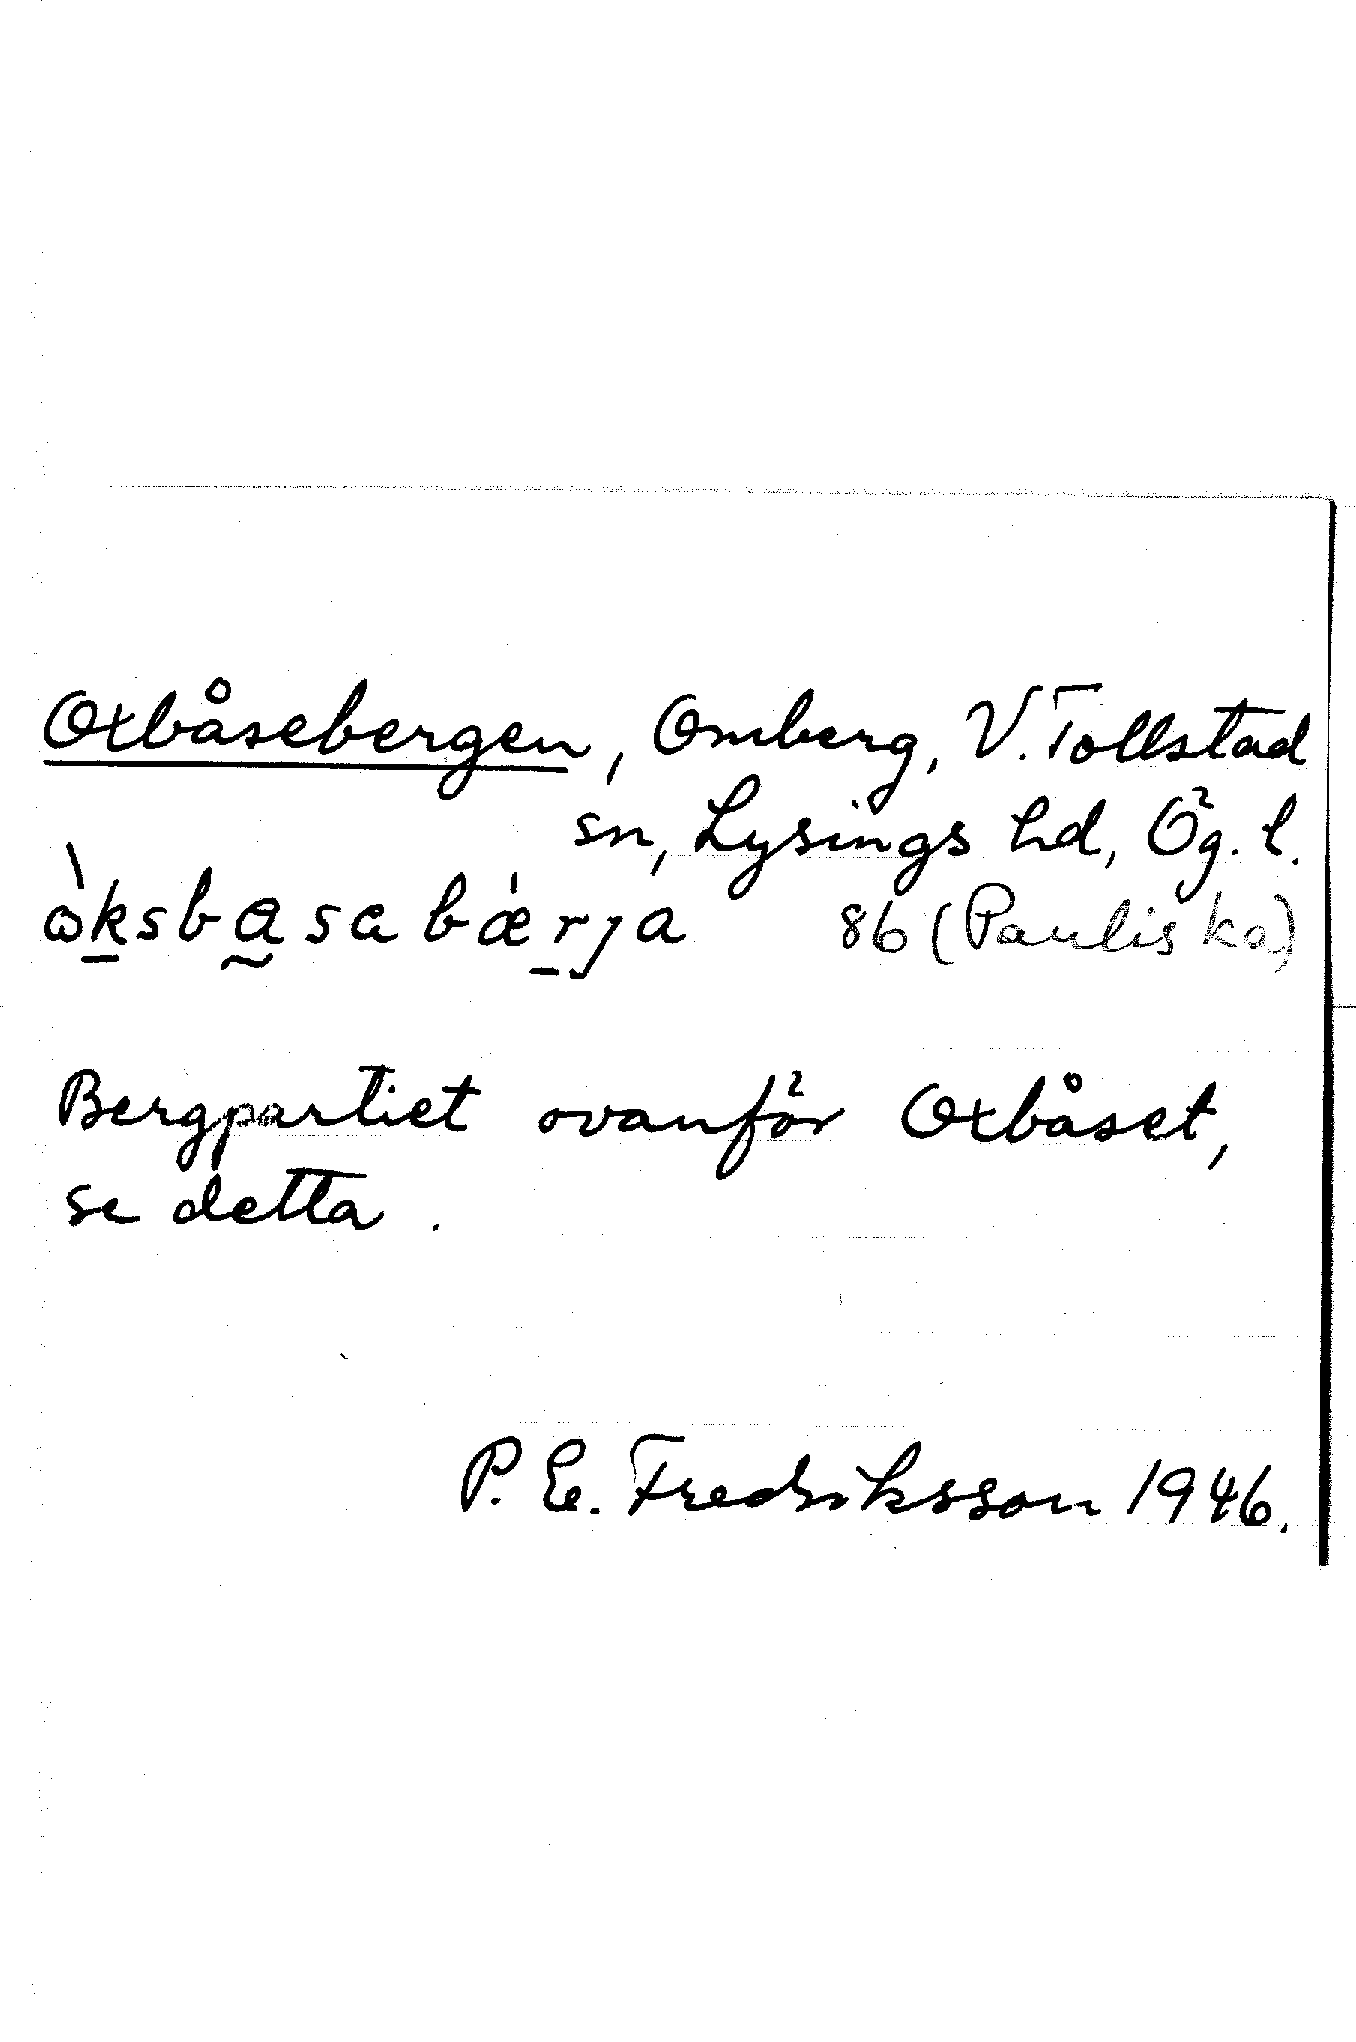 Oxbåsebergen, Omberg, V. Tollstad
sn, Lysings hd, Ög. l.
ὼksbasabærja 86 (Pauliska)
Bergpartiet ovanför Oxbåset,
se detta.
P. E. Fredriksson 1946.